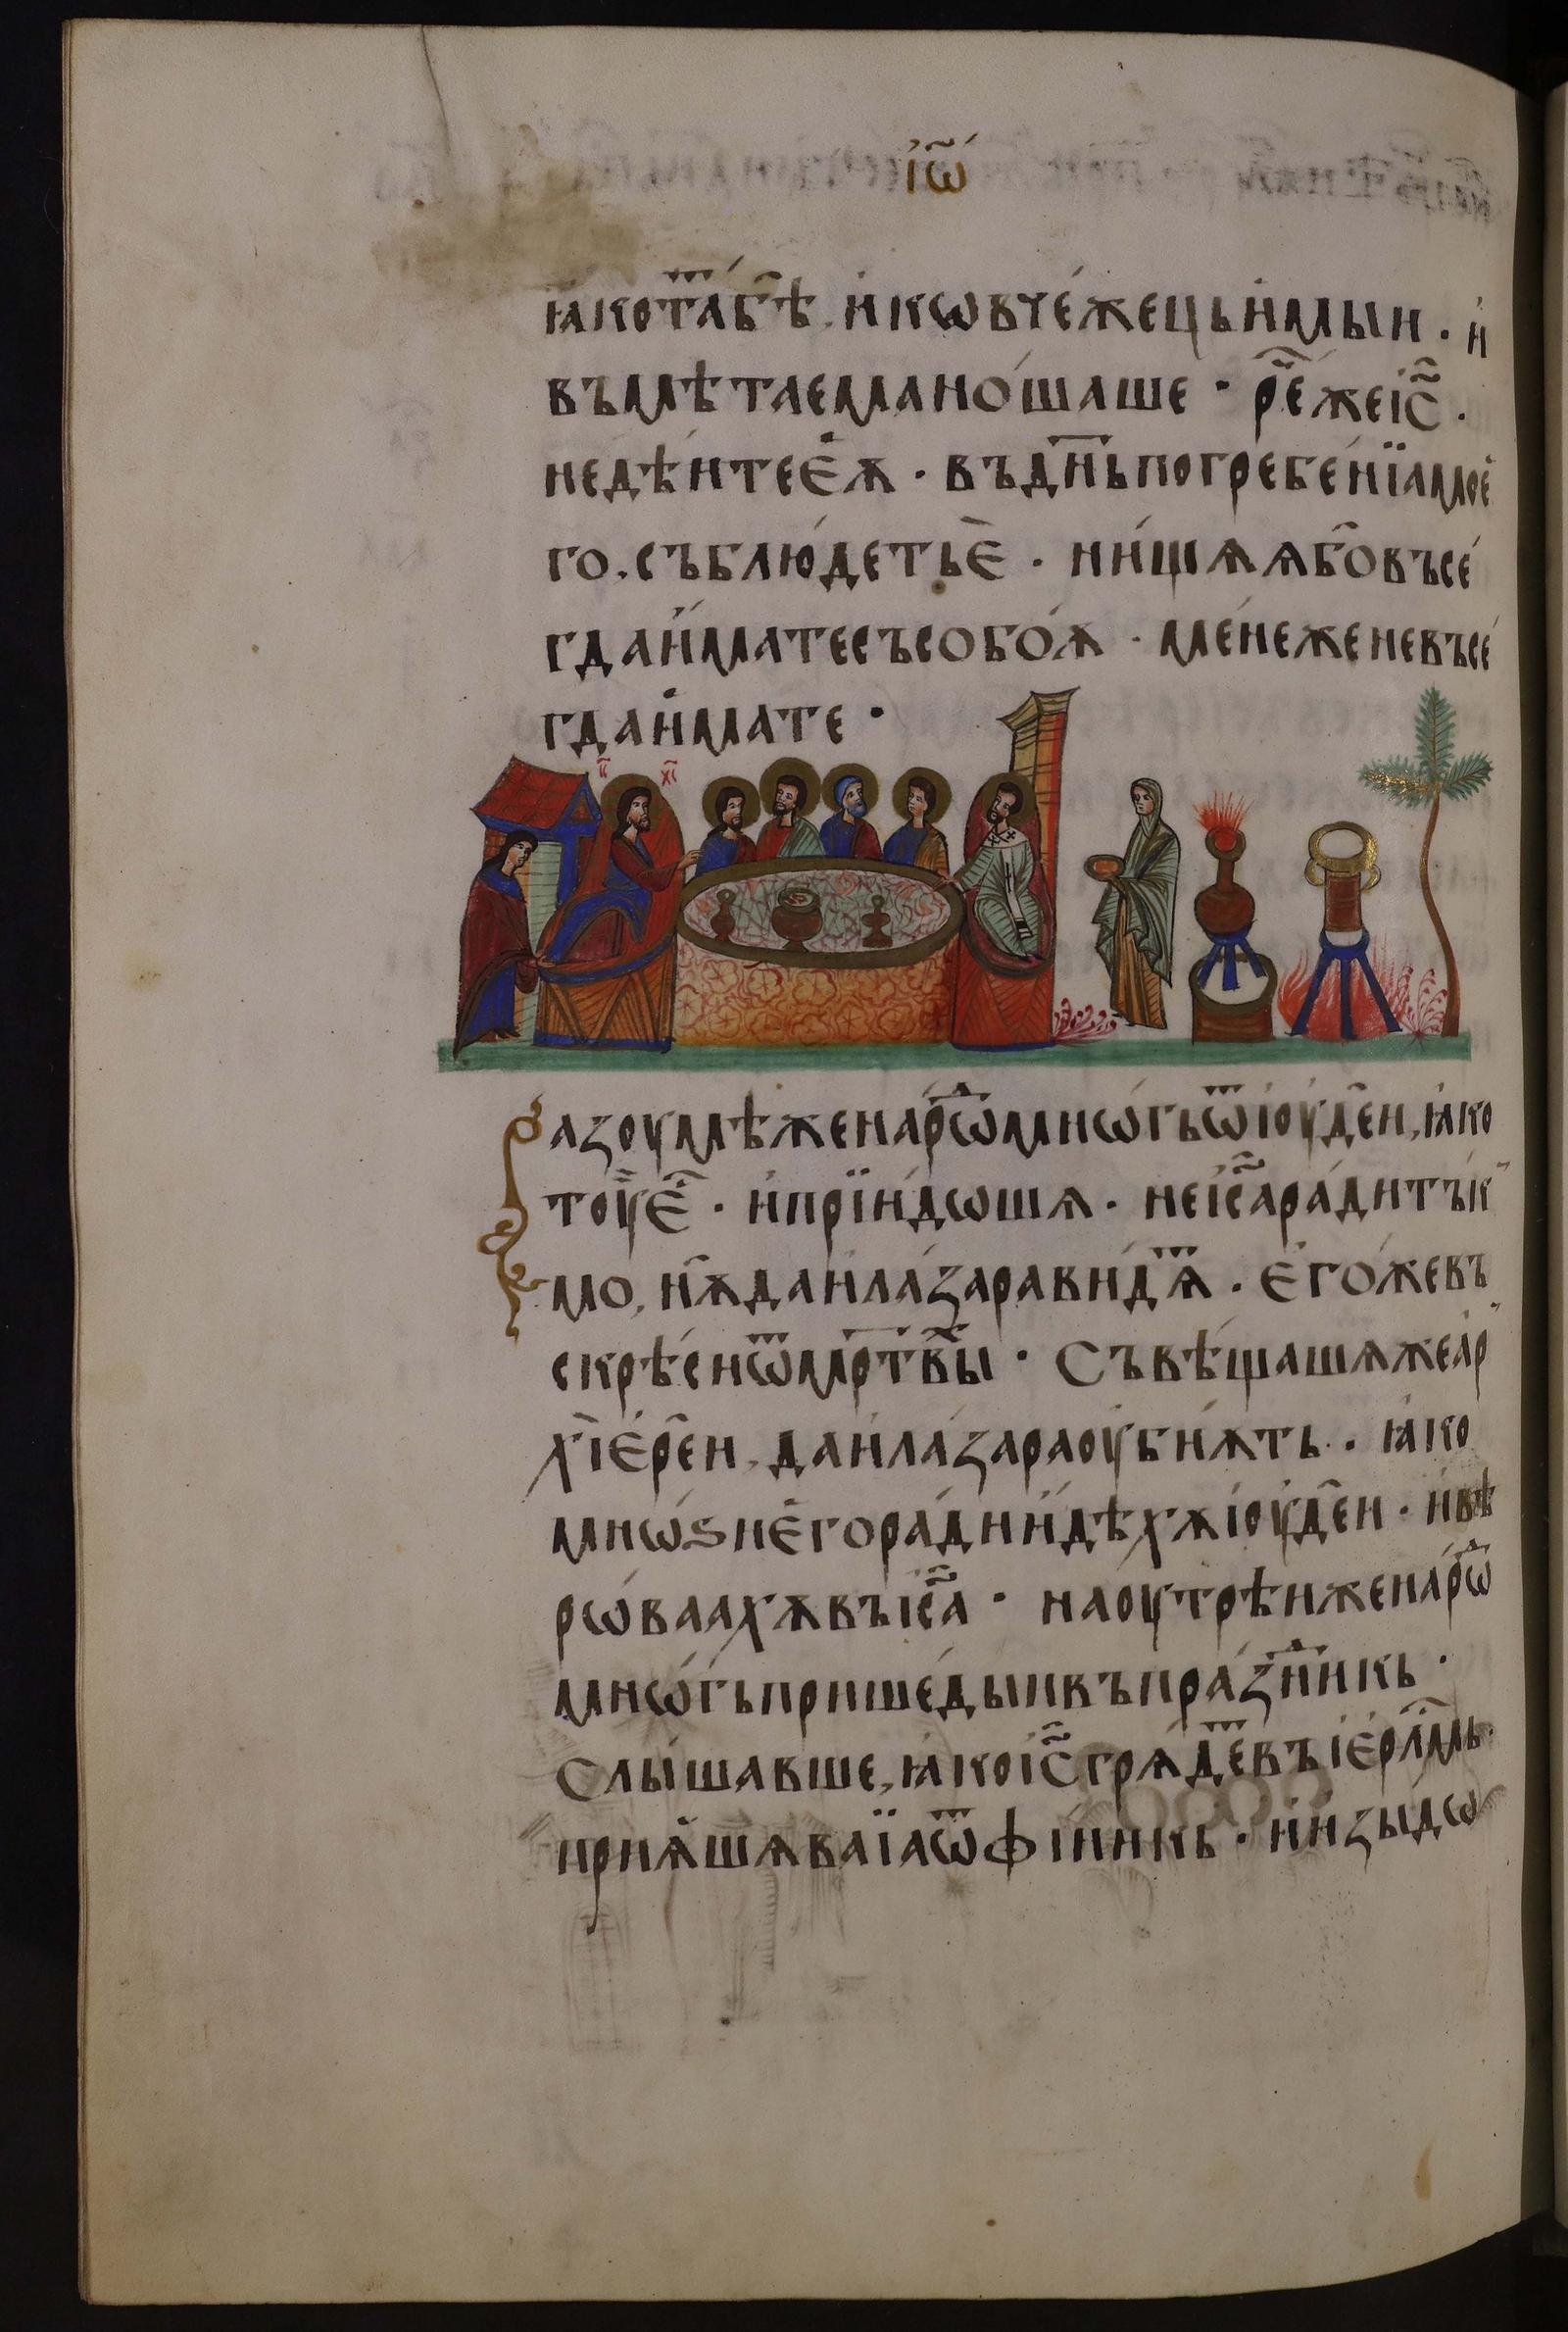 і҆ѡ҃
ꙗкот̾а́бⷭ҇ѣ. и҆ковче́жець и҆мыи · и҆
въмѣтаемаа но́шаше · рⷱ҇ежеіс҃ ·
недѣ́итее҆ѫ̀ · въдн҃ьпогребе́нїамое҆
го. съблю́детьѐ · ни́щѧѧ бо҃въсе́
гдаи҆́матесъсобо́ѫ · ме́неженевъсе́
гдаи҆́мате ·
іс҃ хс҃
Разоумѣ́женарѡⷣмнѡ́гьѿіоуде҃и, ꙗко
тоуⷭ҇е · и҆прїи́дошѧ · неіс҃ара́дитък̾
мо, нѫ҃даи҆ла́заравидѧⷮ · е҆го́жевъ
скрѣ́сиѿмрт҃вы · Съвѣщашѧжеар̾
хїе҆ре҃и, даи҆ла́зараоубиѫть · ꙗко
мнѡ́ѕиего ра́дии҆дѣхѫіоуде҃и · и҆вѣ
рѡваахѫвъіс҃а · наоутрѣижена́рѡⷣ
мнѡ́гьприше́дыивъпра́зⷣникь ·
Слы́шавше, ꙗкоіс҃грѧ́деⷮвъіе҆рⷭ҇лимь ·
приѧ́шѧва́їаѿфі́никь · и҆изыдѡ